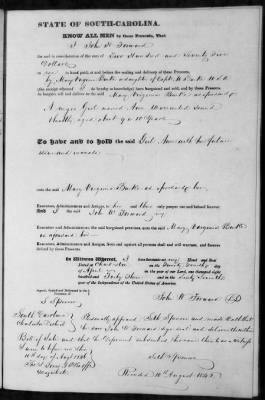 STATE OF SOUTH-CAROLINA.
KNOW ALL MEN by these Presents, That
I John W. Torward
for and in consideration of the sum of Two Hundred and Seventy Five
Dollars
to me in hand paid, at and before the sealing and delivery of these Presents,
by Mary Virginia Burke a daughter of Capt.
(the receipt whereof I do hereby acknowledge) have bargained and sold, and by these Presents,
do bargain, sell and deliver to the said Mary Virginia Burke
A negro Girl named Ann Warranted Sound
Healthy aged about 9 or 10 Years
To have and to hold the said Girl Ann with her future
issue and increase
unto the said Mary Virginia Burke
Executors, Administrators and Assigns, to her and their only proper use and behoof forever.
And I the said John W. Torward my
Executors, Administrators and the said bargained premises, unto the said Mary Virginia Burke
Executors, Administrators and Assigns, from and against all persons shall and will warrant, and forever
defend by these Presents.
In Witness Whereof, I have hereunto set my Hand and Seal
Dated at Charleston on the Twenty Seventh day of
April in the year of our Lord, one thousand eight
hundred and Forty Three and in the Sixty Seventh
year of the Independence of the United States of America.
Signed, Sealed and Delivered in the Presence of
S Spencer
John W. Torward
South Carolina
Charleston District
Personally appeared Seth Spencer and made Oath that
he saw John W Torward sign seal and deliver the within
Bill of Sale and that he
Sworn to before me this
10th day of August 1843
Seth Spencer
Recorded 10th August 1843